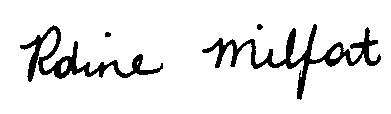 Rdine Milfort